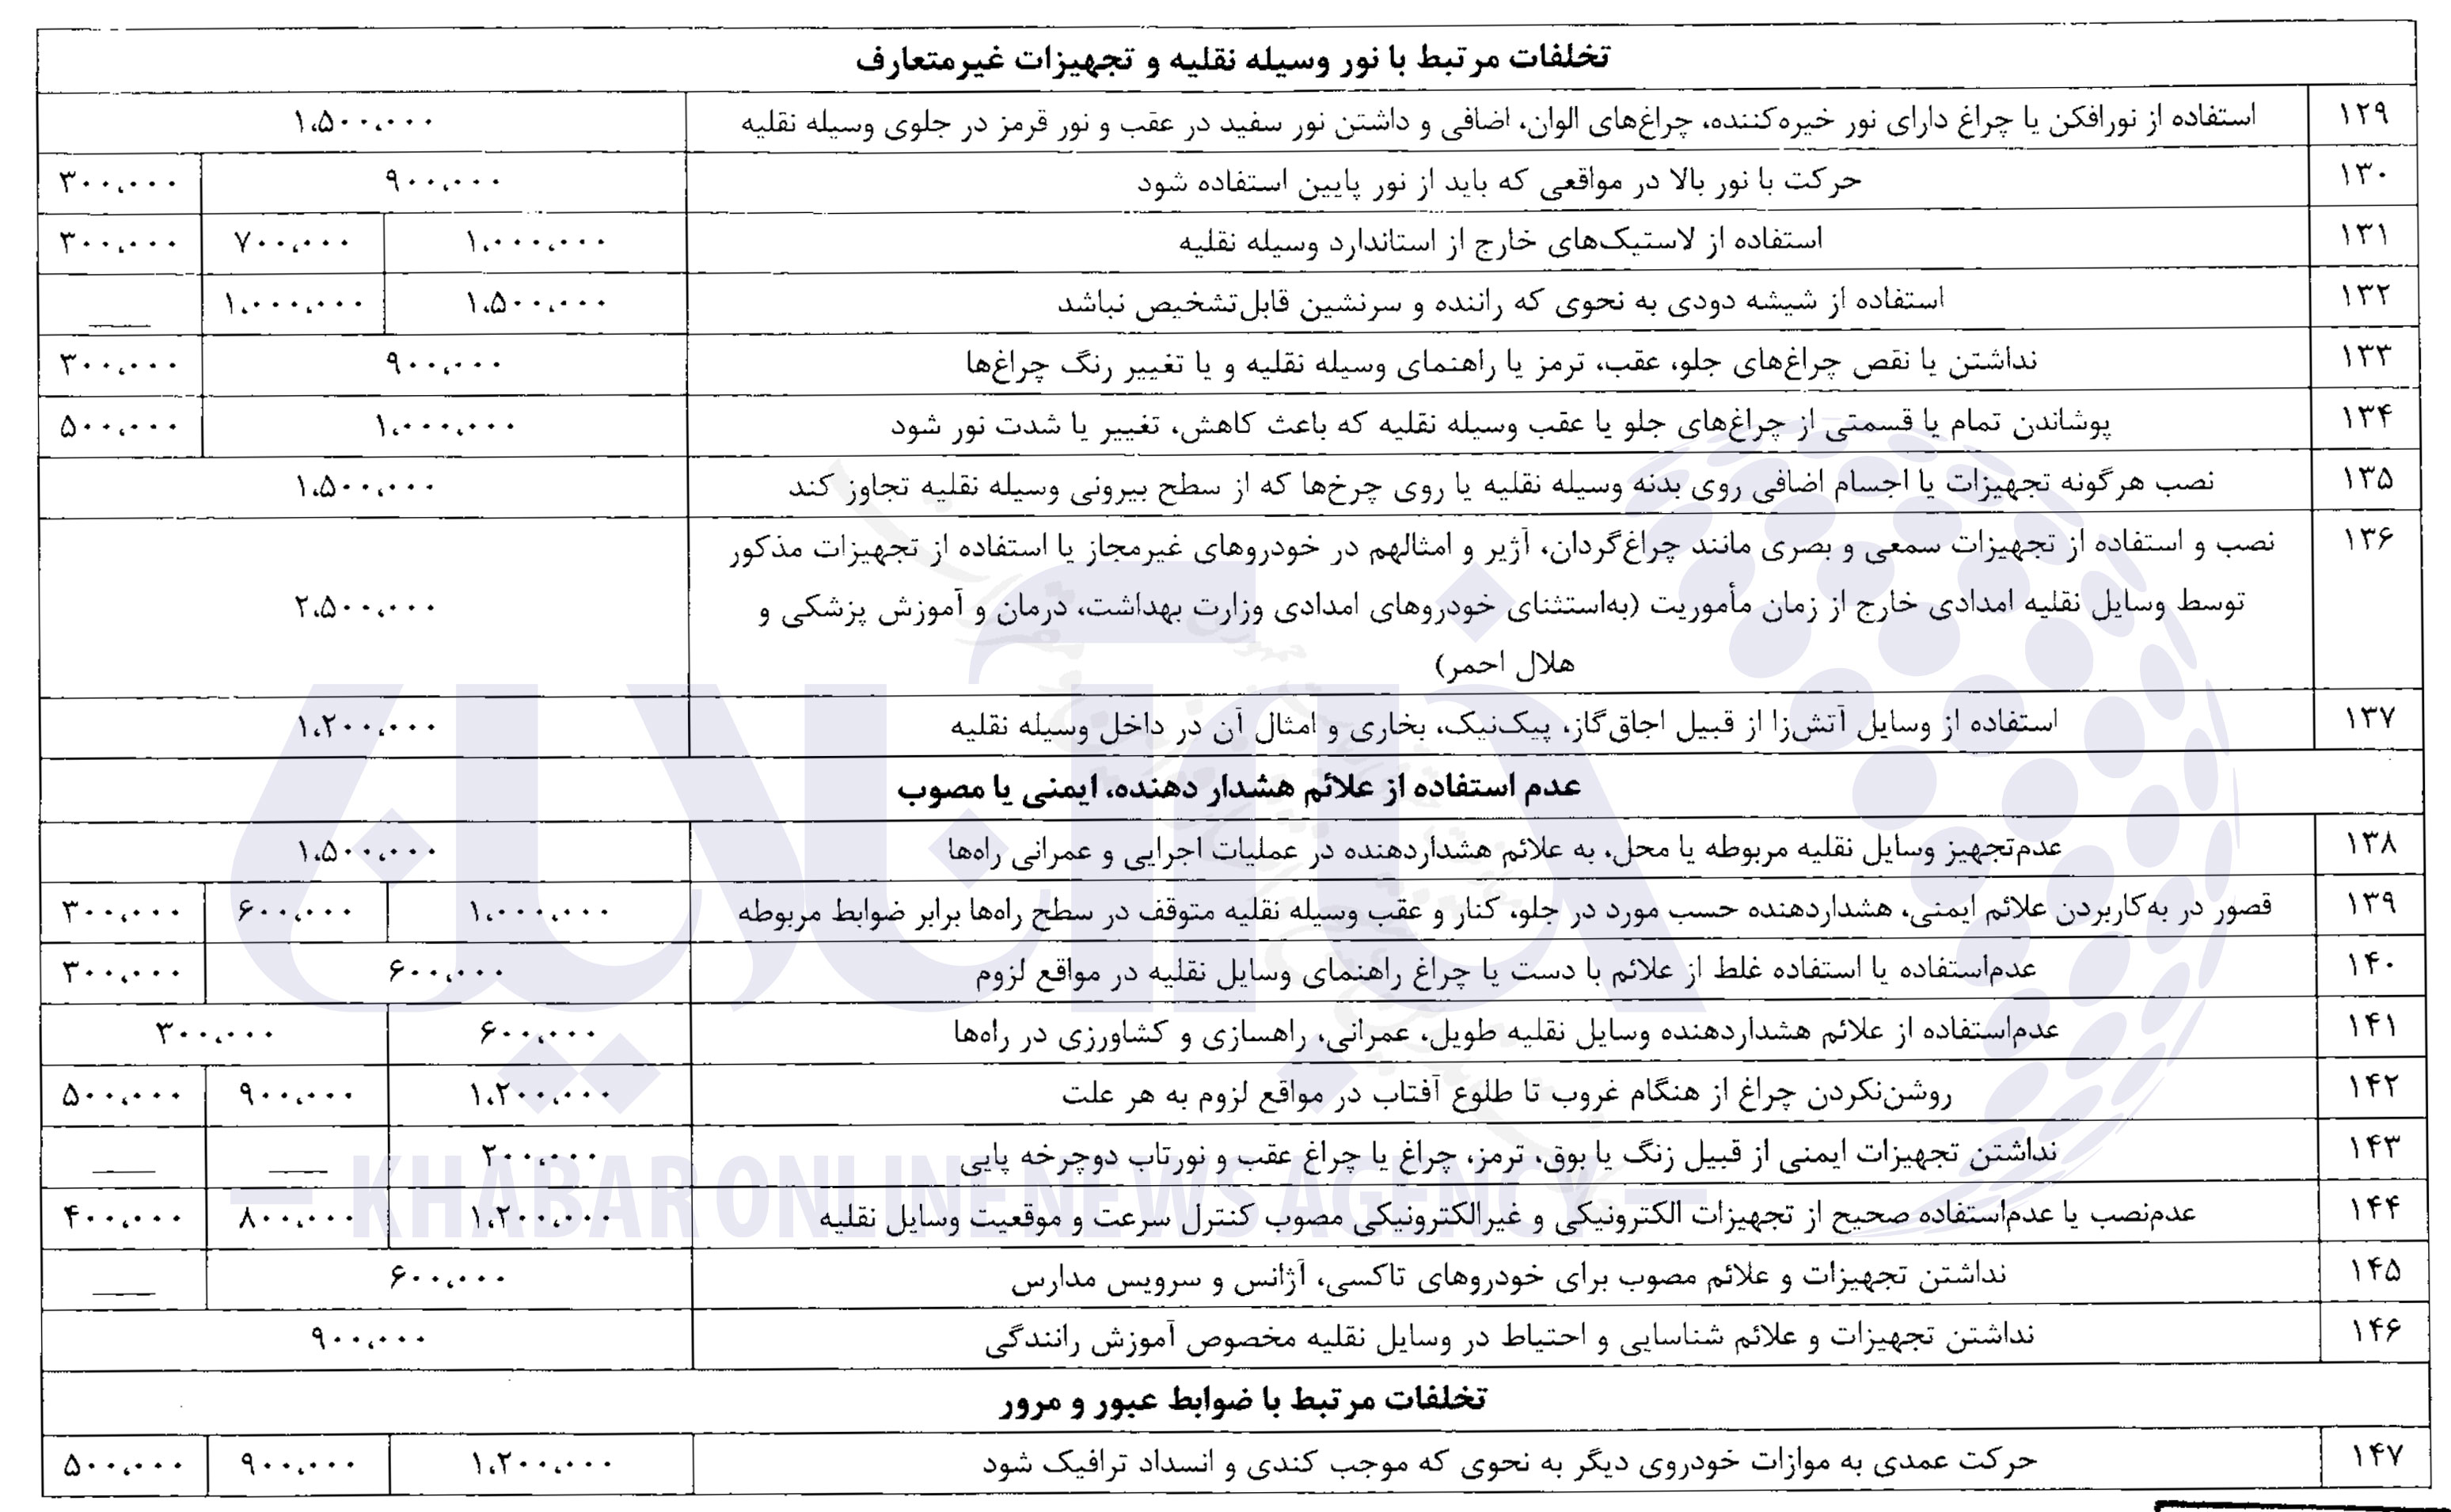 تخلفات مرتبط با نور وسیله نقلیه و تجهیزات غیرمتعارف
۱۲۹ استفاده از نورافکن یا چراغ دارای نور خیره‌کننده، چراغ‌های الوان، اضافی و داشتن نور سفید در عقب و نور قرمز در جلوی وسیله نقلیه ۱،۵۰۰،۰۰۰
۱۳۰ حرکت با نور بالا در مواقعی که باید از نور پایین استفاده شود ۹۰۰،۰۰۰ ۳۰۰،۰۰۰
۱۳۱ استفاده از لاستیک‌های خارج از استاندارد وسیله نقلیه ۱،۰۰۰،۰۰۰ ۷۰۰،۰۰۰ ۳۰۰،۰۰۰
۱۳۲ استفاده از شیشه دودی به نحوی که راننده و سرنشین قابل‌تشخیص نباشد ۱،۵۰۰،۰۰۰ ۱،۰۰۰،۰۰۰ ___
۱۳۳ نداشتن یا نقص چراغ‌های جلو، عقب، ترمز یا راهنمای وسیله نقلیه و یا تغییر رنگ چراغ‌ها ۹۰۰،۰۰۰ ۳۰۰،۰۰۰
۱۳۴ پوشاندن تمام یا قسمتی از چراغ‌های جلو یا عقب وسیله نقلیه که باعث کاهش، تغییر یا شدت نور شود ۱،۰۰۰،۰۰۰ ۵۰۰،۰۰۰
۱۳۵ نصب هرگونه تجهیزات یا اجسام اضافی روی بدنه وسیله نقلیه یا روی چرخ‌ها که از سطح بیرونی وسیله نقلیه تجاوز کند ۱،۵۰۰،۰۰۰
۱۳۶ نصب و استفاده از تجهیزات سمعی و بصری مانند چراغ‌گردان، آژیر و امثالهم در خودروهای غیرمجاز یا استفاده از تجهیزات مذکور
توسط وسایل نقلیه امدادی خارج از زمان مأموریت (به‌استثنای خودروهای امدادی وزارت بهداشت، درمان و آموزش پزشکی و ۲،۵۰۰،۰۰۰
هلال احمر)
۱۳۷ استفاده از وسایل آتش‌زا از قبیل اجاق‌گاز، پیک‌نیک، بخاری و امثال آن در داخل وسیله نقلیه ۱،۲۰۰،۰۰۰
عدم استفاده از علائم هشدار دهنده، ایمنی یا مصوب
۱۳۸ عدم‌تجهیز وسایل نقلیه مربوطه یا محل، به علائم هشداردهنده در عملیات اجرایی و عمرانی راه‌ها ۱،۵۰۰،۰۰۰
۱۳۹ قصور در به‌کاربردن علائم ایمنی، هشداردهنده حسب مورد در جلو، کنار و عقب وسیله نقلیه متوقف در سطح راه‌ها برابر ضوابط مربوطه ۱،۰۰۰،۰۰۰ ۶۰۰،۰۰۰ ۳۰۰،۰۰۰
۱۴۰ عدم‌استفاده یا استفاده غلط از علائم با دست یا چراغ راهنمای وسایل نقلیه در مواقع لزوم ۶۰۰،۰۰۰ ۳۰۰،۰۰۰
۱۴۱ عدم‌استفاده از علائم هشداردهنده وسایل نقلیه طویل، عمرانی، راهسازی و کشاورزی در راه‌ها ۶۰۰،۰۰۰ ۳۰۰،۰۰۰
۱۴۲ روشن‌نکردن چراغ از هنگام غروب تا طلوع آفتاب در مواقع لزوم به هر علت ۱،۲۰۰،۰۰۰ ۹۰۰،۰۰۰ ۵۰۰،۰۰۰
۱۴۳ نداشتن تجهیزات ایمنی از قبیل زنگ یا بوق، ترمز، چراغ یا چراغ عقب و نورتاب دوچرخه پایی ۲۰۰،۰۰۰ ___ ___
۱۴۴ عدم‌نصب یا عدم‌استفاده صحیح از تجهیزات الکترونیکی و غیرالکترونیکی مصوب کنترل سرعت و موقعیت وسایل نقلیه ۱،۲۰۰،۰۰۰ ۸۰۰،۰۰۰ ۴۰۰،۰۰۰
۱۴۵ نداشتن تجهیزات و علائم مصوب برای خودروهای تاکسی، آژانس و سرویس مدارس ۶۰۰،۰۰۰ ___
۱۴۶ نداشتن تجهیزات و علائم شناسایی و احتیاط در وسایل نقلیه مخصوص آموزش رانندگی ۹۰۰،۰۰۰
تخلفات مرتبط با ضوابط عبور و مرور
۱۴۷ حرکت عمدی به موازات خودروی دیگر به نحوی که موجب کندی و انسداد ترافیک شود ۱،۲۰۰،۰۰۰ ۹۰۰،۰۰۰ ۵۰۰،۰۰۰
خبرآنلاین
KHABAR ONLINE NEWS AGENCY